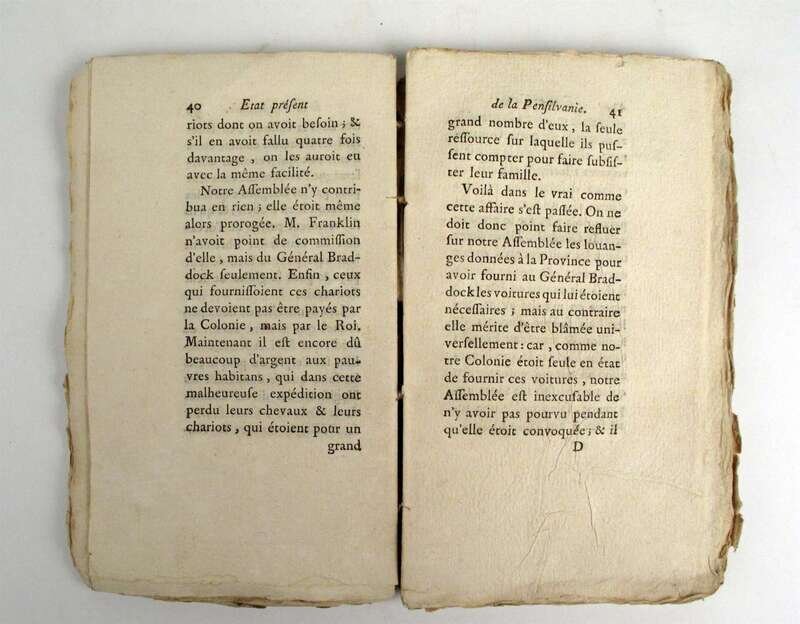 40 Etat préſent
riots dont on avoit beſoin ; &
s'il en avoit fallu quatre fois
davantage , on les auroit eu
avec la même facilité.
Notre Aſſemblée n'y contri-
bua en rien ; elle étoit même
alors prorogée. M. Franklin
n'avoit point de commiſſion
d'elle , mais du Général Brad-
dock ſeulement. Enfin , ceux
qui fourniſſoient ces chariots
ne devoient pas être payés par
la Colonie , mais par le Roi.
Maintenant il eſt encore dû
beaucoup d'argent aux pau-
vres habitans , qui dans cette
malheureuſe expédition ont
perdu leurs chevaux & leurs
chariots , qui étoient pour un
grand
de la Penſilvanie. 41
grand nombre d'eux , la ſeule
reſſource ſur laquelle ils puſ-
ſent compter pour faire ſubſiſ-
ter leur famille.
Voilà dans le vrai comme
cette affaire s'eſt paſſée. On ne
doit donc point faire refluer
ſur notre Aſſemblée les louan-
ges données à la Province pour
avoir fourni au Général Brad-
dock les voitures qui lui étoient
néceſſaires ; mais au contraire
elle mérite d'être blâmée uni-
verſellement : car , comme no-
tre Colonie étoit ſeule en état
de fournir ces voitures , notre
Aſſemblée eſt inexcuſable de
n'y avoir pas pourvu pendant
qu'elle étoit convoquée ; & il
D